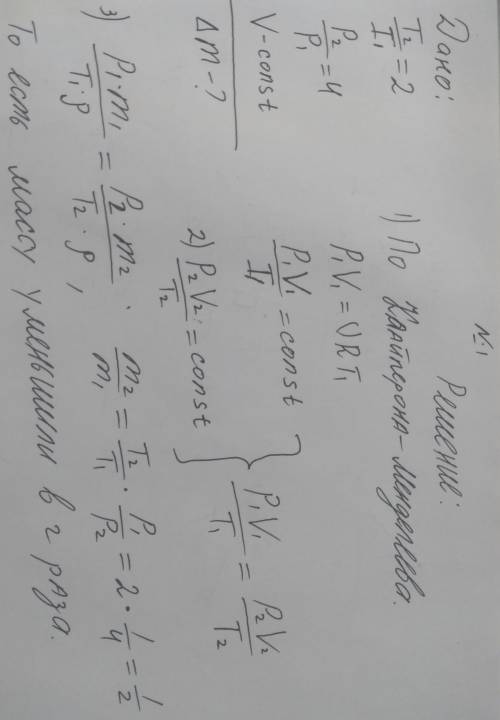 №1
Дано:
T₂/T₁ = 2
P₂/P₁ = 4
V-const
Δm-?
Решение:
1) По Клайперона-Менделеева.
P₁V₁ = νRT₁
P₁V₁/T₁ = const
2) P₂V₂/T₂ = const } P₁V₁/T₁ = P₂V₂/T₂
3) P₁·m₁/T₁·ρ = P₂·m₂/T₂·ρ, m₂/m₁ = T₂/T₁ · P₁/P₂ = 2·1/4 = 1/2
То есть массу уменьшили в 2 раза.